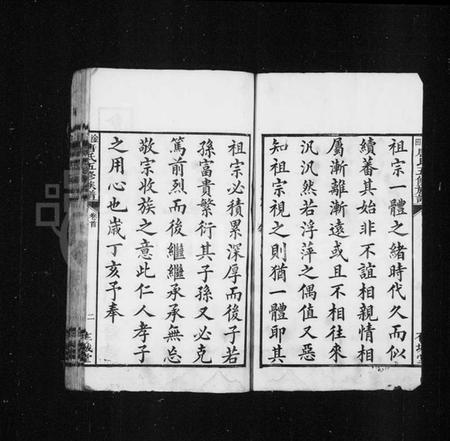 祖宗一體之緒時代久而似
續蕃其始非不誼相親情相
屬漸離漸遠或且不相往來
汎汎然若浮萍之偶值又惡
知祖宗視之則猶一體耶其
祖宗必積累深厚而後子若
孫富貴繁衍其子孫又必克
篤前烈而後繼繼承承無忝
敬宗收族之意此仁人孝子
之用心也歲丁亥予奉
氏五修族譜
卷首
二